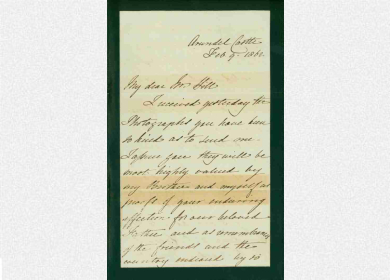 Arundel Castle
Feb 9
My dear Mr. Hill
I received yesterday the
Photographs you have been
so kind as to send me
I assure you they will be
most highly valued by
my Brothers and myself as
proofs of your enduring
affection for our beloved
and as
of the friends and the
by so